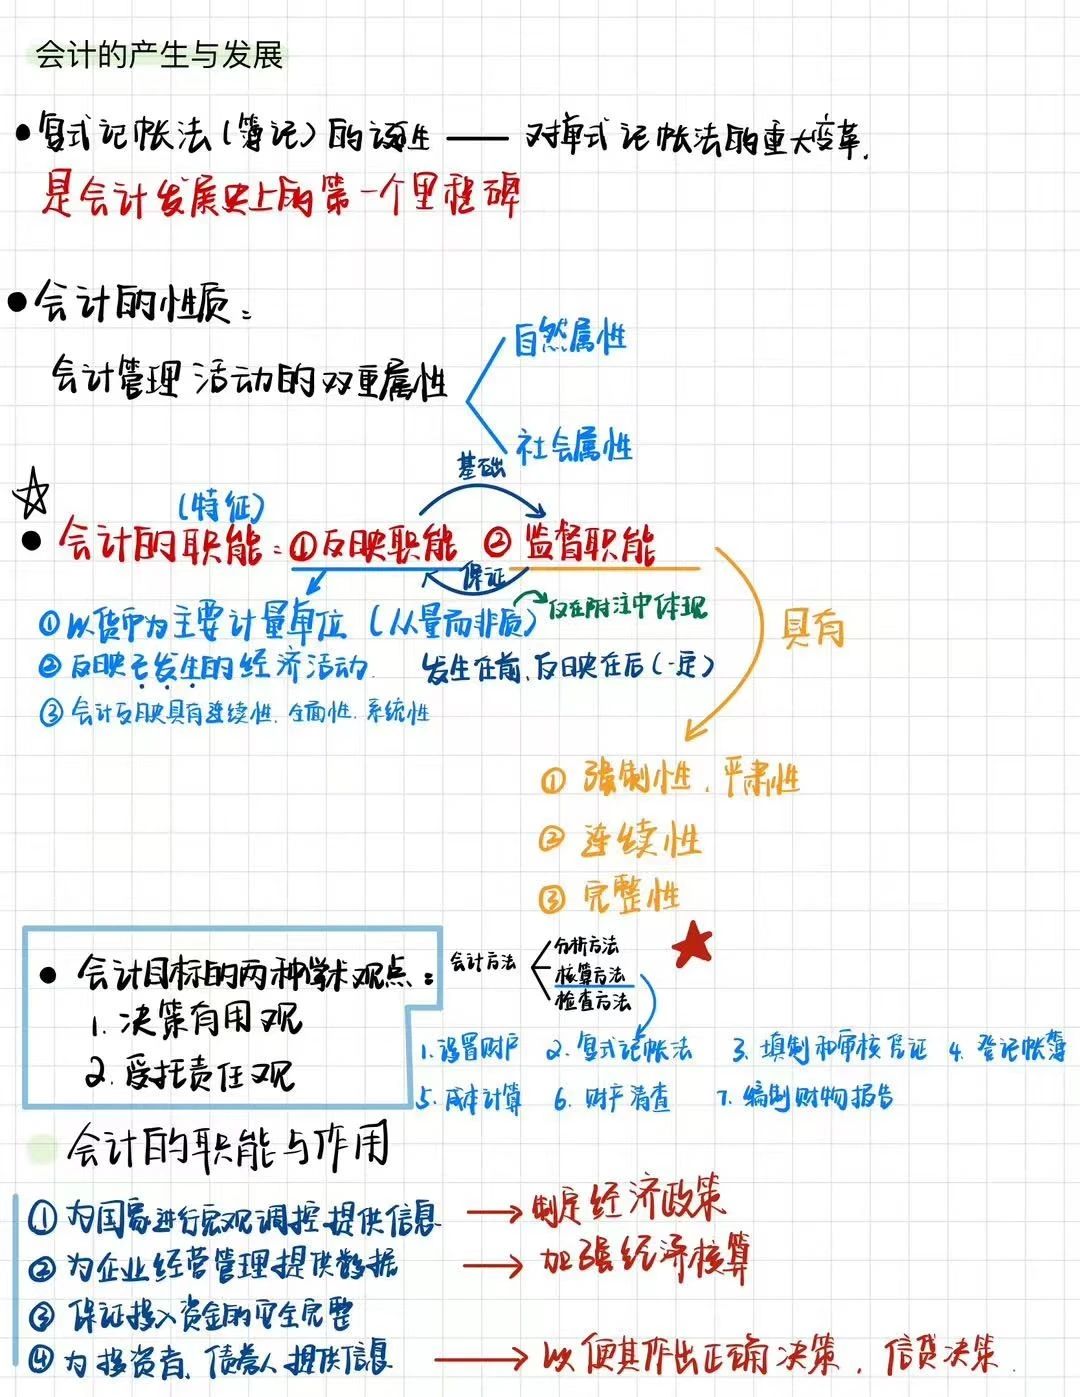 会计的产生与发展
●复式记帐法(簿记)的诞生——对单式记帐法的重大变革.
是会计发展史上的第一个里程碑
●会计的性质:
自然属性
会计管理活动的双重属性
社会属性
基础
(特征)
●会计的职能:①反映职能 ②监督职能
保证
①以货币为主要计量单位(从量而非质)
仅在附注中体现
具有
②反映已发生的经济活动.
发生在前,反映在后(一定)
③会计反映具有连续性.全面性.系统性
①强制性、严肃性
②连续性
③完整性
●会计目标的两种学术观点:
1.决策有用观
2.受托责任观
会计方法
分析方法
核算方法
检查方法
1.设置财户 2.复式记帐法 3.填制和审核凭证 4.登记帐簿
5.成本计算 6.财产清查 7.编制财物报告
会计的职能与作用
①为国家进行宏观调控提供信息 → 制定经济政策
②为企业经营管理提供数据 → 加强经济核算
③保证投入资金的安全完整
④为投资者、债券人提供信息 → 以便其作出正确决策、信贷决策.